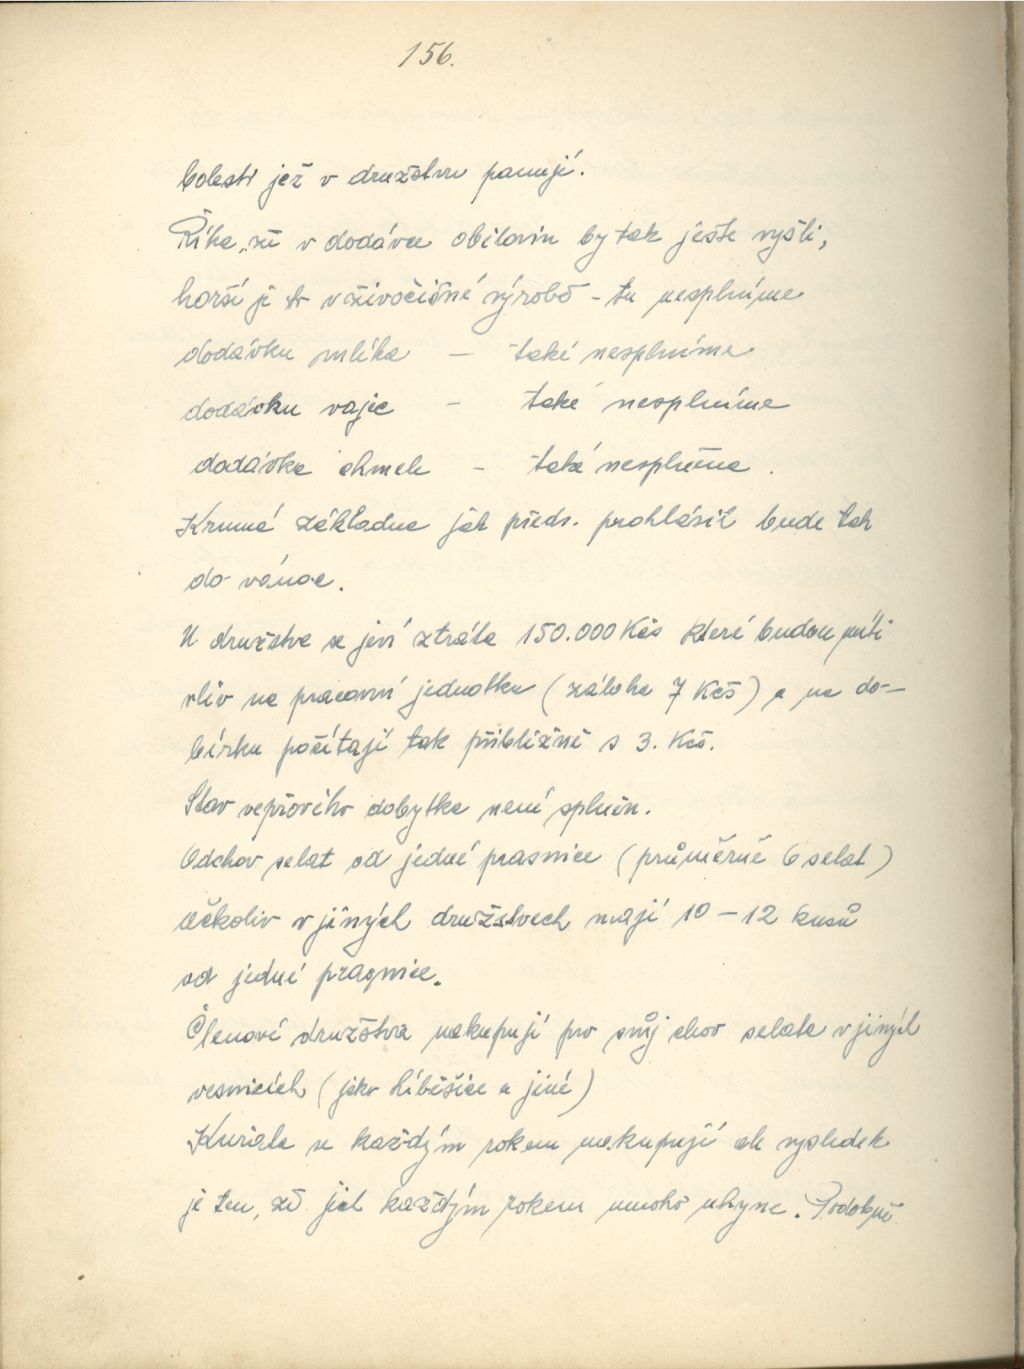 156.
bolesti jež v družstvu panují.
Říka, že v dodávce obilovin by tak ještě vyšli,
horší je to v živočišné výrobě - tu nesplníme
dodávku mléka - také nesplníme
dodávku vajec - také nesplníme
dodávka chmele - také nesplníme.
Krmná základna jak předs. prohlásil bude tak
do vánoc.
U družstva se jeví ztráta 150.000 Kčs které budou míti
vliv na pracovní jednotku (záloha 7 Kčs) a na do-
bírku počítají tak přibližně s 3. Kčs.
Stav vepřového dobytka není splněn.
Odchov selat od jedné prasnice (průměrně 6 selat)
ačkoliv v jiných družstvech mají 10-12 kusů
od jedné prasnice.
Členové družstva nakupují pro svůj chov selata v jiných
vesnicích (jako Liběšice a jiné)
Kuřata se každým rokem nakupují ale výsledek
je ten, že jich každým rokem mnoho uhyne. Podobně